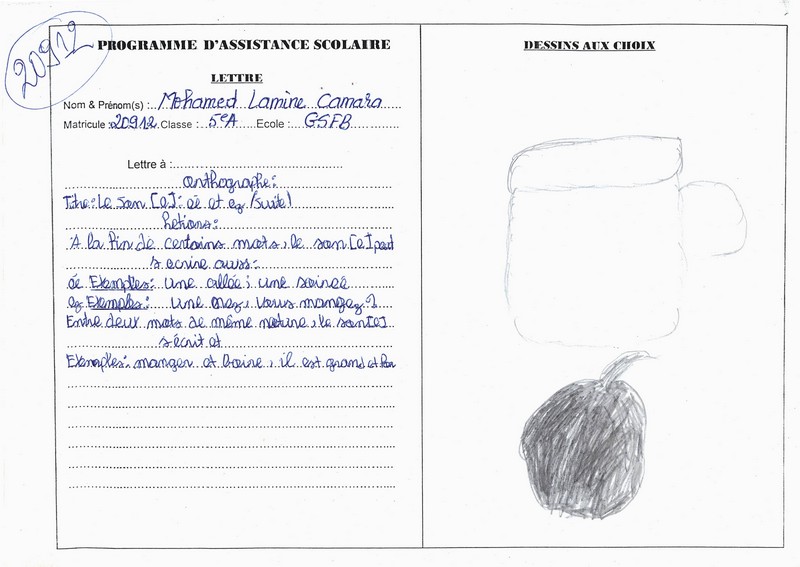 20912
PROGRAMME D'ASSISTANCE SCOLAIRE
LETTRE
Nom & Prénom(s) :..Mohamed Lamine Camara
Matricule :20912.Classe : 5eA Ecole : GSFB
Lettre à :
Orthographe:
Titre: Le son [e]: ée et ez (suite)
Notions:
A la fin de certains mots, le son [e] peut
s'écrire aussi:
ée Exemples: une allée; une soirée
ez Exemples: Vous mangez
Entre deux mots de même nature, le son [e]
s'écrit et
Exemples: manger et boire, il est grand et
DESSINS AUX CHOIX